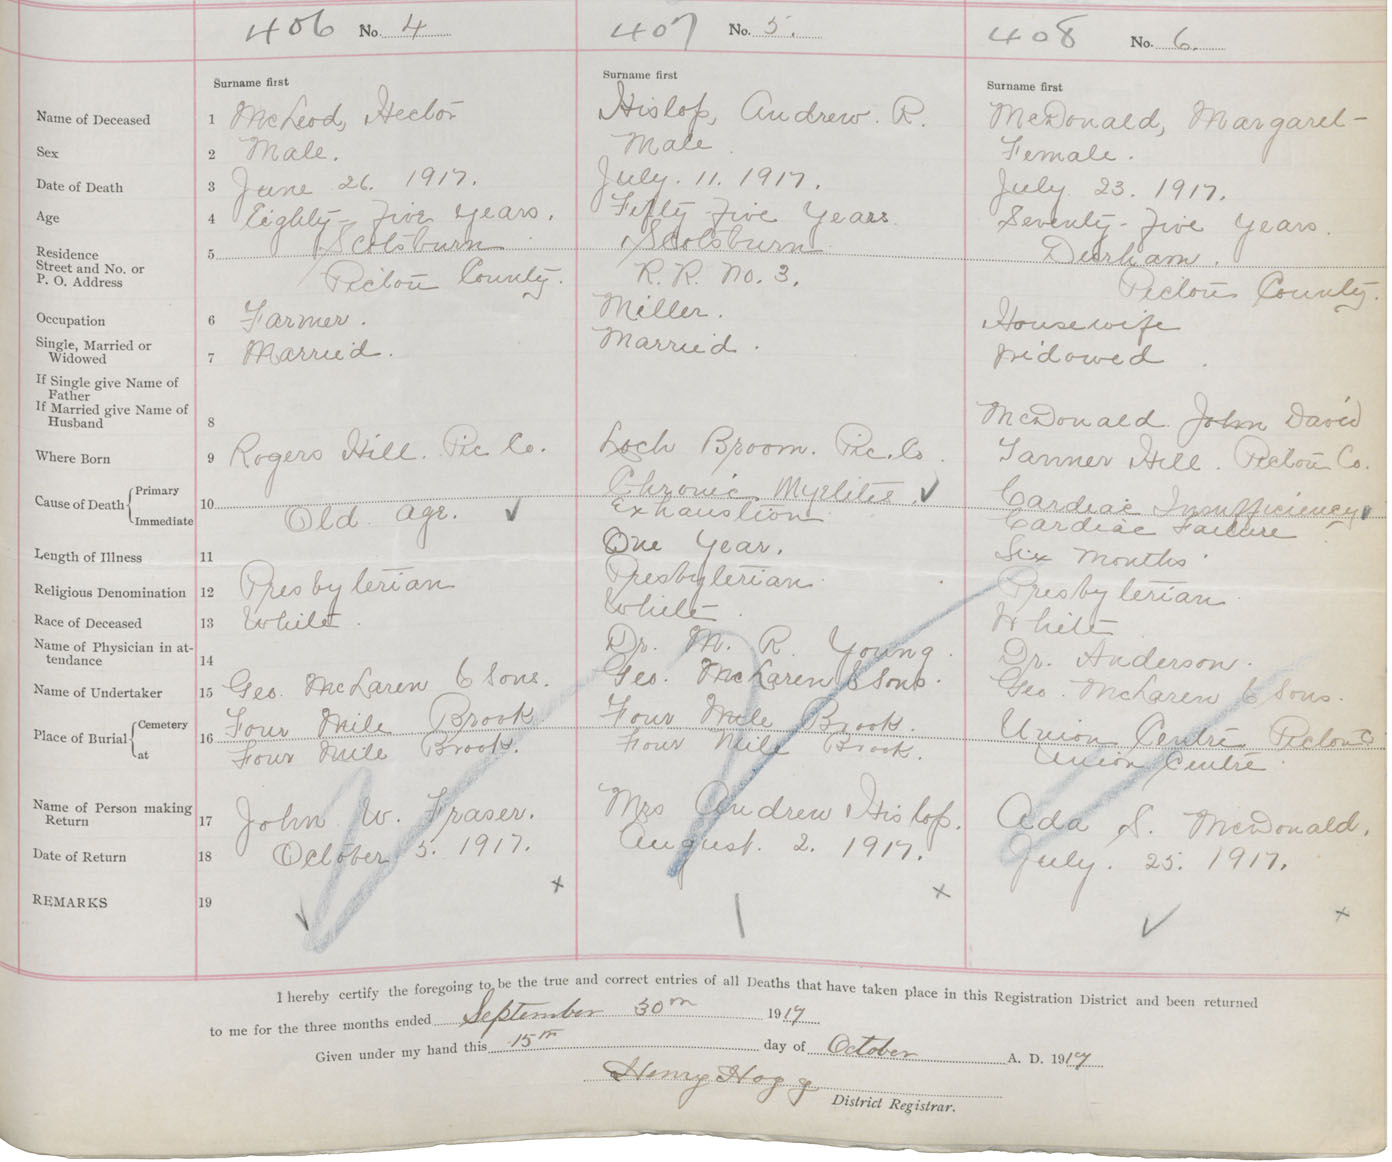 406 No. 4
407 No. 5.
408 No. 6.
Surname first
Surname first
Surname first
Name of Deceased 1 McLeod, Hector Hislop, Andrew. R. McDonald, Margaret
Sex 2 Male. Male. Female.
Date of Death 3 June 26. 1917. July. 11. 1917. July 23. 1917.
Age 4 Eighty-five years. Fifty five years. Seventy-five years.
Residence
Street and No. or
P. O. Address
5 Scotsburn Scotsburn Durham.
Pictou County. R. R. No. 3. Pictou County.
Occupation 6 Farmer. Miller. Housewife
Single, Married or
Widowed 7 Married. Married. Widowed.
If Single give Name of
Father
If Married give Name of
Husband 8 McDonald John David
Where Born 9 Rogers Hill. Pic Co. Loch Broom. Pic. Co. Tanner Hill. Pictou Co.
Cause of Death { Primary 10 Chronic Myelitis. ✓ Cardiac Insufficiency
Immediate Old age. ✓ Exhaustion Cardiac Failure
Length of Illness 11 One Year. Six months.
Religious Denomination 12 Presbyterian Presbyterian Presbyterian
Race of Deceased 13 White White White
Name of Physician in at-
tendance 14 Dr. M. R. Young. Dr. Anderson.
Name of Undertaker 15 Geo. McLaren & Sons. Geo. McLaren & Sons. Geo. McLaren & Sons.
Place of Burial { Cemetery 16 Four Mile Brook Four Mile Brook. Union Centre Pictou Co
at Four Mile Brook. Four Mile Brook. Union Centre
Name of Person making
Return 17 John W. Fraser. Mrs Andrew Hislop. Ada S. McDonald.
Date of Return 18 October 5. 1917. August. 2. 1917. July. 25. 1917.
REMARKS 19
I hereby certify the foregoing to be the true and correct entries of all Deaths that have taken place in this Registration District and been returned
to me for the three months ended September 30th 1917
Given under my hand this 15th day of October A. D. 1917
Henry Hogg
District Registrar.